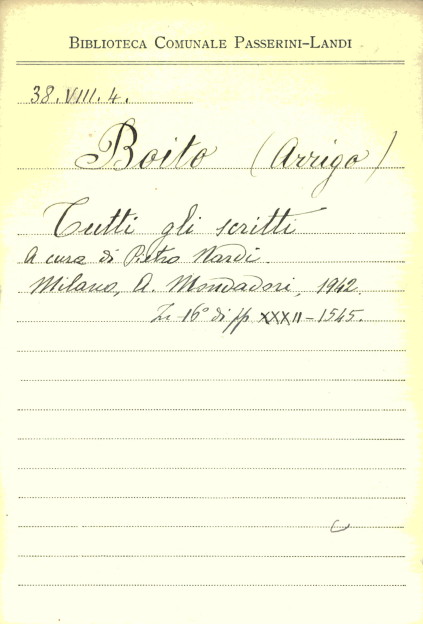 BIBLIOTECA COMUNALE PASSERINI-LANDI
38.VIII.4.
Boito (Arrigo)
Tutti gli scritti
A cura di Pietro Nardi.
Milano, A. Mondadori, 1942.
In 16° di pp XXXII-1545.